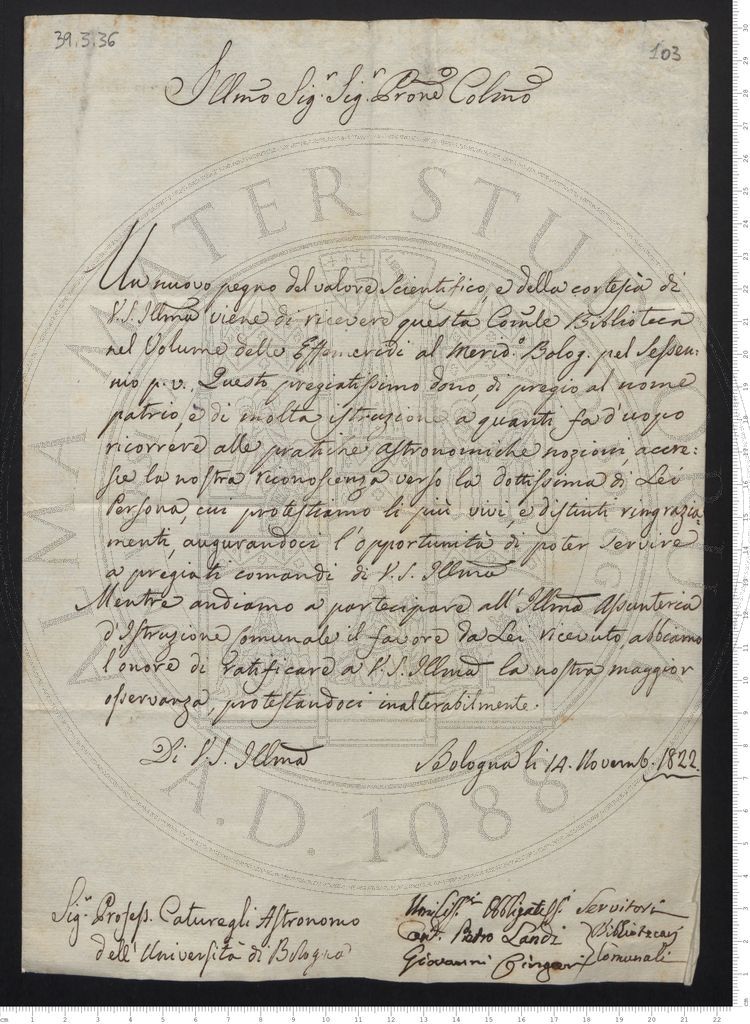 39.3.36
103
Illmo Sigr. Sigr. Prone Colmo
Un nuovo pegno del valore Scientifico, e della cortesia di
V.S. Illma viene di ricevere questa Comle Biblioteca
nel Volume delle Effemeridi al Merido. Bolog. pel Sessen:
nio p. v. Questo pregiatissimo dono, di pregio al nome
patrio, e di molta istruzione a quanti fa d'uopo
ricorrere alle pratiche astronomiche nozioni accre:
sce la nostra riconoscenza verso la dottissima di Lei
Persona, cui protestiamo li più vivi, e distinti ringrazia:
menti, augurandoci l'opportunità di poter servire
a pregiati comandi di V.S. Illma
Mentre andiamo a partecipare all'Illma Assunteria
d'Istruzione Comunale il favore da Lei ricevuto, abbiamo
l'onore di ratificare a V.S. Illma la nostra maggior
osservanza, protestandoci inalterabilmente.
Di V.S. Illma
Bologna li 14. Novemb. 1822.
Sigr. Profess. Caturegli Astronomo
dell'Università di Bologna
Umilissmi Obbligatissi Servitori
Pietro Landi
Giovanni
Bibliotecarj
Comunali
ALMA MATER STUDIORUM
A.D. 1088